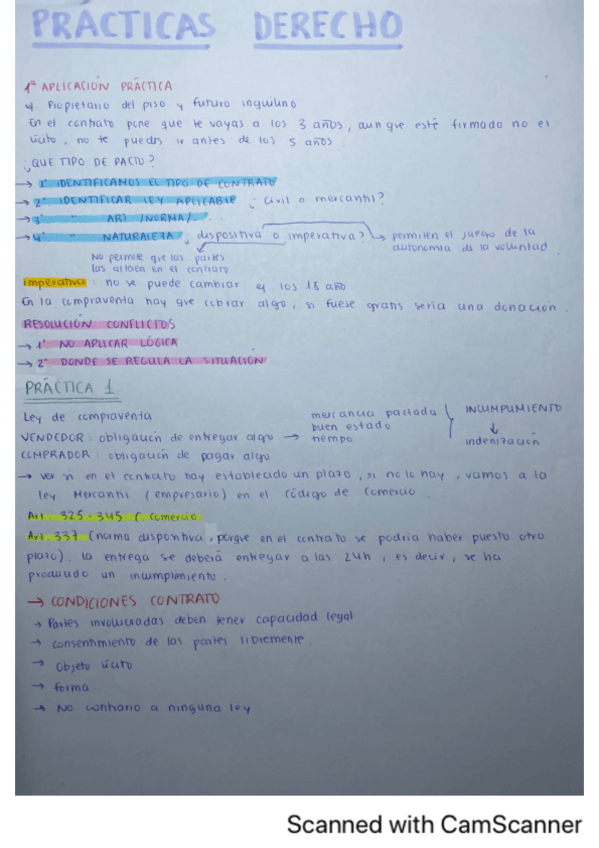 PRÁCTICAS DERECHO
1ª APLICACIÓN PRÁCTICA
ej. Propietario del piso y futuro inquilino
En el contrato pone que te vayas a los 3 años, aunque esté firmado no es
lícito, no te puedes ir antes de los 5 años
¿QUE TIPO DE PACTO?
→ 1º IDENTIFICAMOS EL TIPO DE CONTRATO
→ 2º IDENTIFICAR LEY APLICABLE ¿civil o mercantil?
→ 3º " ART /NORMA/ ...
→ 4º " NATURALEZA ¿dispositiva o imperativa? → permiten el juego de la
autonomía de la voluntad
No permite que las partes
los alteen en el contrato
imperativa: no se puede cambiar ej los 18 año
En la compraventa hay que cobrar algo, si fuese gratis sería una donación.
RESOLUCIÓN CONFLICTOS
→ 1º NO APLICAR LÓGICA
→ 2º DONDE SE REGULA LA SITUACIÓN
PRÁCTICA 1
Ley de compraventa
VENDEDOR: obligación de entregar algo → mercancía pactada
buen estado
tiempo
INCUMPLIMIENTO
↓
indenización
COMPRADOR: obligación de pagar algo
→ ver si en el contrato hay establecido un plazo, si no lo hay, vamos a la
ley Mercantil (empresario) en el Código de Comercio.
Art. 325-345 C. Comercio
Art 337 (norma dispositiva, porque en el contrato se podría haber puesto otro
plazo). La entrega se deberá entregar a las 24h, es decir, se ha
producido un incumplimiento.
→ CONDICIONES CONTRATO
→ Partes involucradas deben tener capacidad legal
→ consentimiento de las partes libremente.
→ Objeto lícito
→ forma
→ No contrario a ninguna ley
Scanned with CamScanner